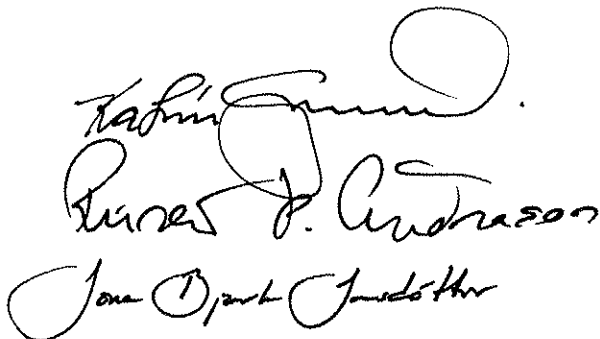 Katrín
Rúnar Þ. Andrason
Jóna Björk Jónsdóttir